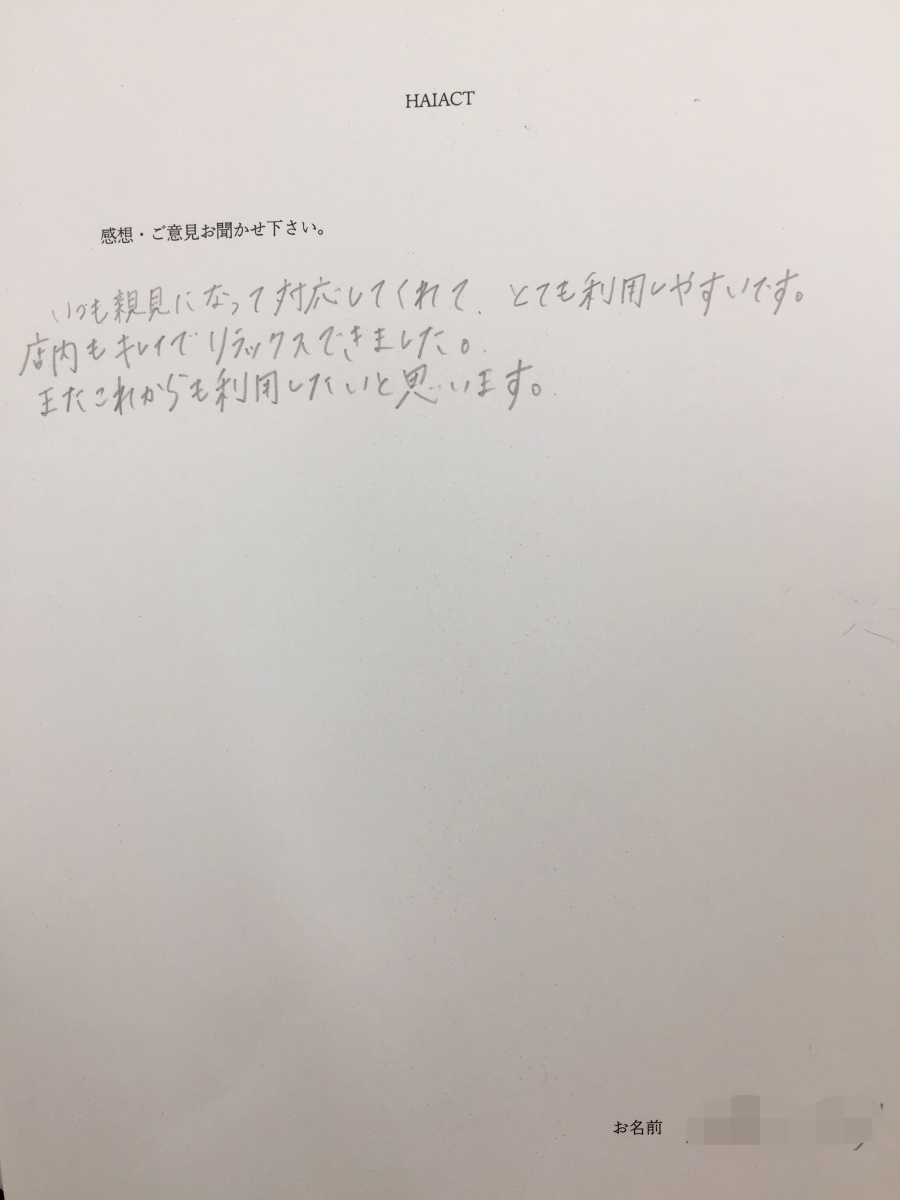 HAIACT
感想・ご意見お聞かせ下さい。
いつも親見になって対応してくれて、とても利用しやすいです。
店内もキレイでリラックスできました。
またこれからも利用したいと思います。
お名前